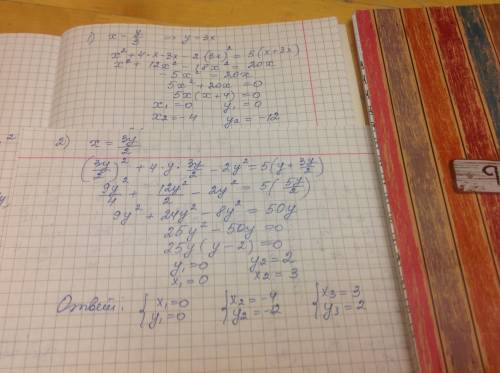 1) x = y/3 => y = 3x
x² + 4·x·3x - 2(3x)² = 5(x+3x)
x² + 12x² - 18x² = 20x
-5x² = 20x
5x² + 20x = 0
5x(x+4) = 0
x₁ = 0 y₁ = 0
x₂ = -4 y₂ = -12
2) x = 3y/2
(3y/2)² + 4·y·3y/2 - 2y² = 5(y + 3y/2)
9y²/4 + 12y²/2 - 2y² = 5(5y/2)
9y² + 24y² - 8y² = 50y
25y² - 50y = 0
25y(y-2) = 0
y₁ = 0 y₂ = 2
x₁ = 0 x₂ = 3
Ответ: { x₁ = 0 { x₂ = -4 { x₃ = 3
y₁ = 0 y₂ = -2 y₃ = 2